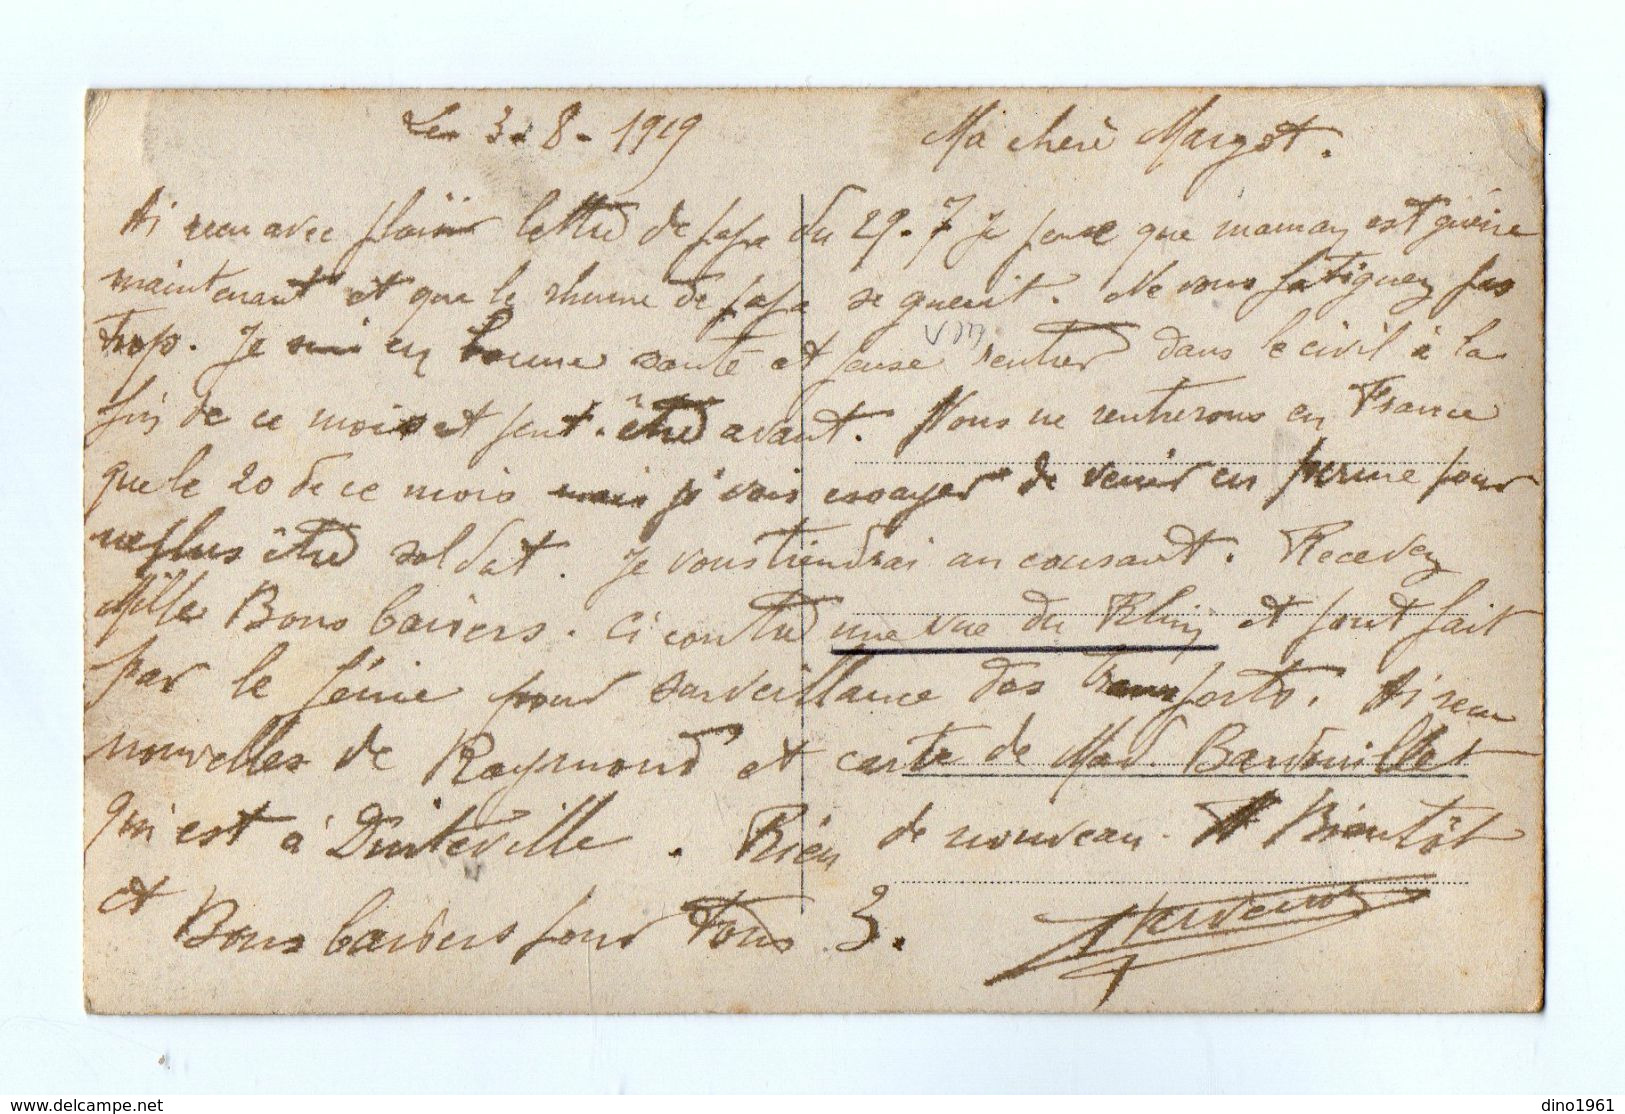 Le 3-8-1919 Ma chère Margot.
Ai reçu avec plaisir lettre de papa du 29-7 je pense que maman est guérie
maintenant et que le rhume de papa se guerit. Ne vous fatiguez pas
trop. Je suis en bonne santé et pense rentrer dans le civil à la
fin de ce mois et peut-être avant. Nous ne rentrerons en France
que le 20 de ce mois mais j'vais essayer de venir en perme pour
ne plus être soldat. Je vous tiendrai au courant. Recevez
Mille Bons baisers. Ci contre une vue du Rhin et pont fait
par le génie pour surveillance des transports. Ai reçu
nouvelles de Raymond et carte de Mad. Bardouillet
qui est à Dinteville. Rien de nouveau. A Bientôt
et Bons baisers pour tous 3.
www.delcampe.net
dino1961